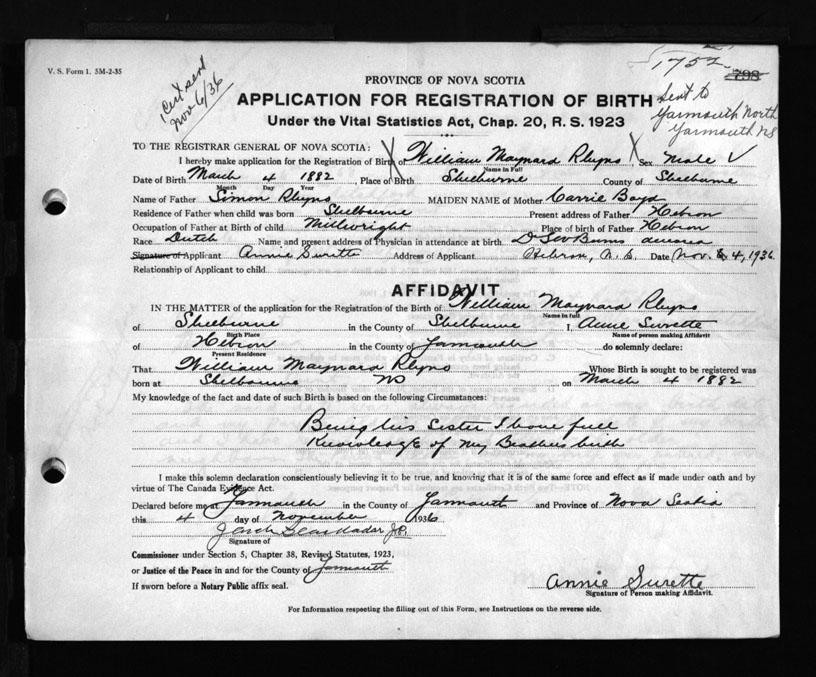 V. S. Form 1. 5M-2-35
Cert sent
Nov 6/36
1752
798
Sent to
Yarmouth North
Yarmouth NS
PROVINCE OF NOVA SCOTIA
APPLICATION FOR REGISTRATION OF BIRTH
Under the Vital Statistics Act, Chap. 20, R. S. 1923
TO THE REGISTRAR GENERAL OF NOVA SCOTIA:
I hereby make application for the Registration of Birth of William Maynard Rhyno Sex Male
Name in Full
Date of Birth March 4 1882, Place of Birth Shelburne County of Shelburne
Month Day Year
Name of Father Simon Rhyno MAIDEN NAME of Mother Carrie Boyd
Residence of Father when child was born Shelbourne Present address of Father Hebron
Occupation of Father at Birth of child Millwright Place of birth of Father Hebron
Race Dutch Name and present address of Physician in attendance at birth Dr
Signature of Applicant Annie Surette Address of Applicant Hebron, N. S. Date Nov. 4, 1936
Relationship of Applicant to child
AFFIDAVIT
IN THE MATTER of the application for the Registration of the Birth of William Maynard Rhyno
Name in full
of Shelburne in the County of Shelburne I, Annie Surette
Birth Place Name of person making Affidavit
of Hebron in the County of Yarmouth do solemnly declare:
Present Residence
That William Maynard Rhyno Whose Birth is sought to be registered was
born at Shelbourne NS on March 4 1882
My knowledge of the fact and date of such Birth is based on the following Circumstances:
Being his Sister I have full
Knowledge of my Brothers birth
I make this solemn declaration conscientiously believing it to be true, and knowing that it is of the same force and effect as if made under oath and by
virtue of The Canada Evidence Act.
Declared before me at Yarmouth in the County of Yarmouth and Province of Nova Scotia
this 4 day of November 1936
J.P.
Signature of
Commissioner under Section 5, Chapter 38, Revised Statutes, 1923,
or Justice of the Peace in and for the County of Yarmouth
If sworn before a Notary Public affix seal.
Annie Surette
Signature of Person making Affidavit.
For Information respecting the filling out of this Form, see Instructions on the reverse side.